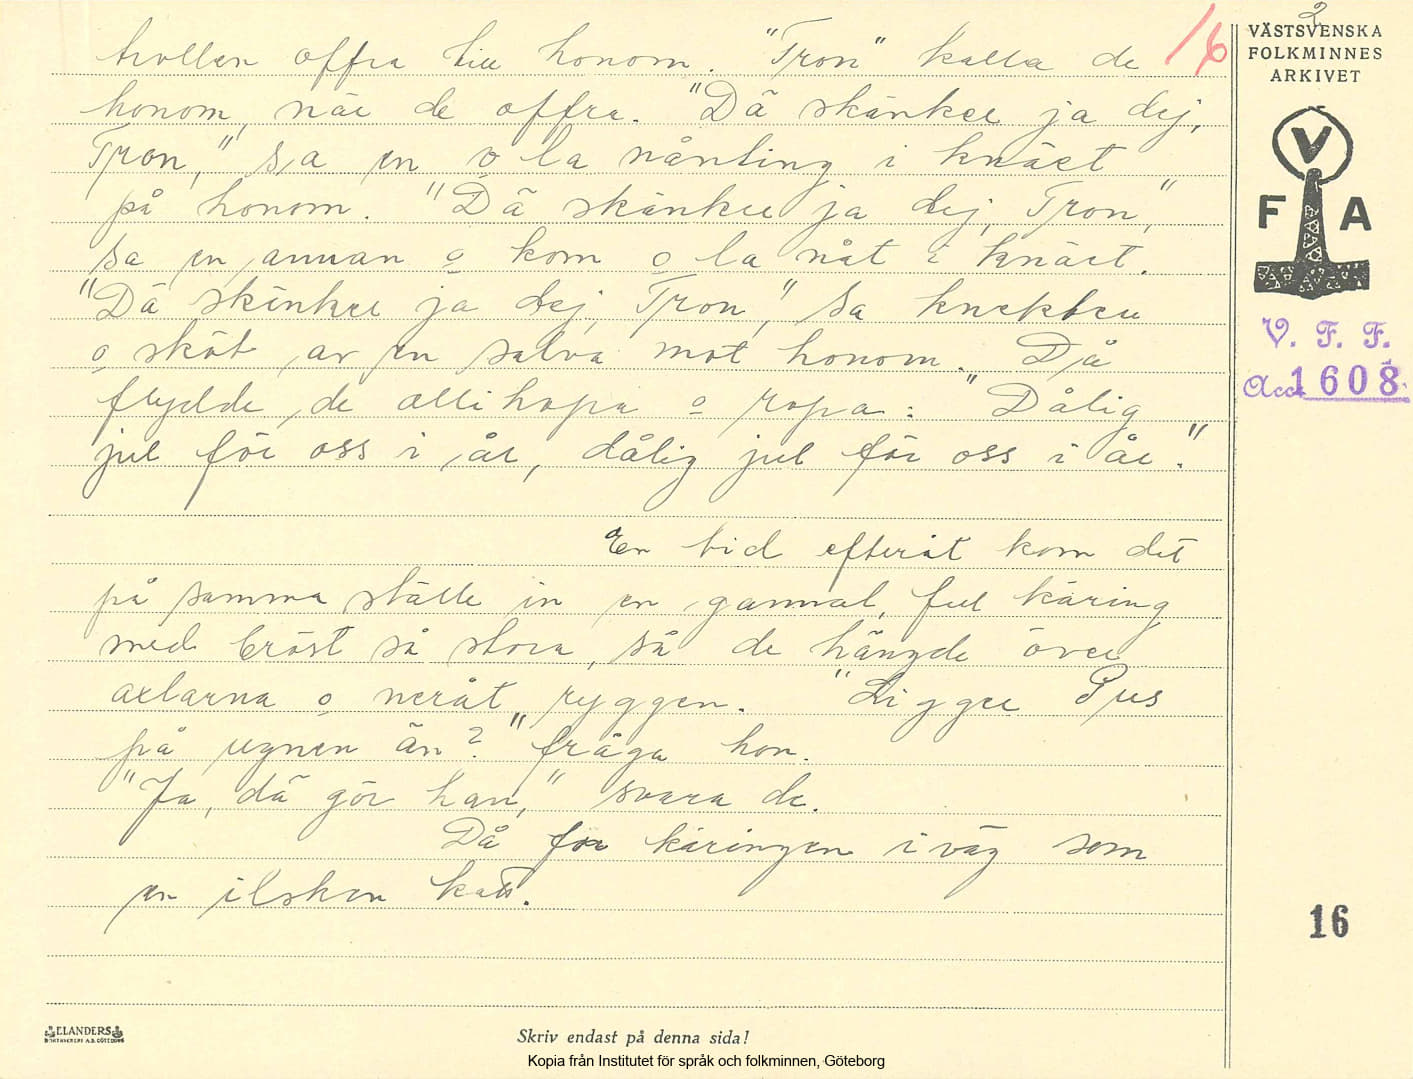 2
16
VÄSTSVENSKA
FOLKMINNES
ARKIVET
V
F A
V. F. F.
Acc. 1608.
trollen offra till honom. "Tron" kalla de
honom, när de offra. "Dä skänker ja dej,
Tron," sa en o la nånting i knäet
på honom. "Dä skänker ja dej, Tron,"
sa en annan o kom o la nåt i knäet.
"Dä skänker ja dej, Tron," sa knekten
o sköt av en salva mot honom. Då
flydde de allihopa o ropa: "Dålig
jul för oss i år, dålig jul för oss i år."
En tid efteråt kom det
på samma ställe in en gammal, ful käring
med bröst så stora, så de hängde över
axlarna o neråt ryggen. "Ligger Pus
på ugnen än?" fråga hon.
"Ja, dä gör han," svara de.
Då for käringen iväg som
en ilsken katt.
16
ELANDERS
BOKTRYCKERI A.B. GÖTEBORG
Skriv endast på denna sida!
Kopia från Institutet för språk och folkminnen, Göteborg